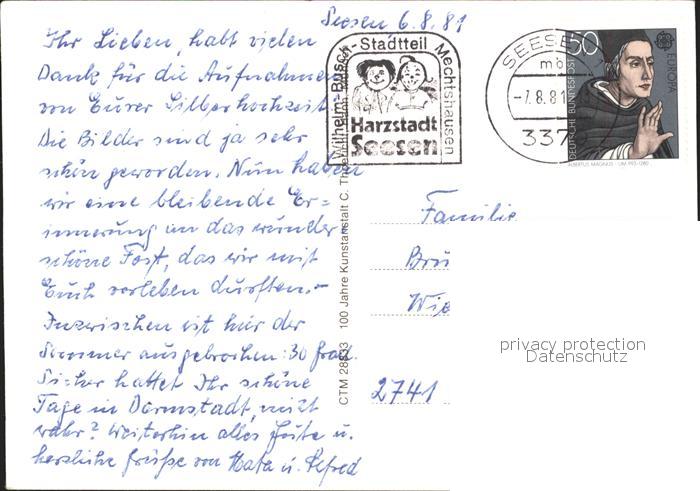 Seesen 6.8.81
Ihr Lieben, habt vielen
Dank für die Aufnahmen
von Eurer Silberhochzeit.
Die Bilder sind ja sehr
schön geworden. Nun haben
wir eine bleibende Er=
innerung an das wunder
schöne Fest, das wir mit
Euch verleben durften.-
Inzwischen ist hier der
Sommer ausgebrochen: 30 Grad.
Sicher hattet Ihr schöne
Tage in Darmstadt, nicht
wahr? Weiterhin alles Gute u.
herzliche Grüße von u. Alfred
Wilhelm-Busch-Stadtteil Mechtshausen
Harzstadt
Seesen
SEESE
mb
-7.8.81
337
50
DEUTSCHE BUNDESPOST
EUROPA
ALBERTUS MAGNUS · UM 1193-1280
CTM 100 Jahre Kunstanstalt C.
Familie
Brü
Wie
2741
privacy protection
Datenschutz